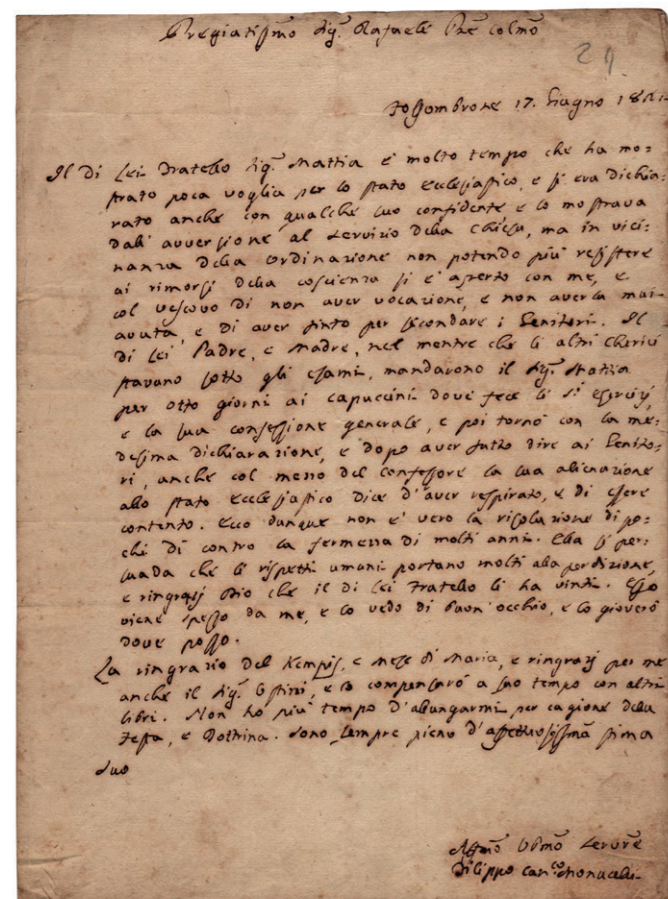 Pregiatissmo Sig.r Rafaele Pne Colmo
29.
Fossombrone 17. Giugno 18
Il di Lei Fratello Sig.r Mattia è molto tempo che ha mo=
strato poca voglia per lo stato Ecclesiastico, e si era dichia=
rato anche con qualche suo confidente e lo mostrava
dall' avversione al servizio della Chiesa, ma in vici=
nanza della ordinazione non potendo più resistere
ai rimorsi della coscienza si è aperto con me, e
col vescovo di non aver vocazione, e non averla mai
avuta, e di aver finto per secondare i Genitori. Il
di Lei Padre, e Madre, nel mentre che li altri Cherici
stavano sotto gli esami, mandarono il Sig.r Mattia
per otto giorni ai Capuccini dove fece li SS. Esercizj
e la sua confessione generale, e poi tornò con la me=
desima dichiarazione, e dopo aver fatto dire ai Genito=
ri, anche col mezzo del confessore la sua alienazione
allo stato Ecclesiastico dice d'aver respirato, e di essere
contento. Ecco dunque non è vero la risoluzione di po=
chi dì contro la fermezza di molti anni. Ella si per=
suada che li rispetti umani portano molti alla perdizione,
e ringrazj Dio che il di lei Fratello li ha vinti. Esso
viene spesso da me, e lo vedo di buon occhio, e lo gioverò
dove posso.
La ringrazio del Kempis, e Mese di Maria, e ringrazj per me
anche il Sig.r, e lo compenserò a suo tempo con altri
libri. Non ho più tempo d'allungarmi per cagione della
Festa, e Dottrina. Sono sempre pieno d'affettuosissima stima
Suo
Affmo Obmo Servre
Filippo Can.co Monacelli